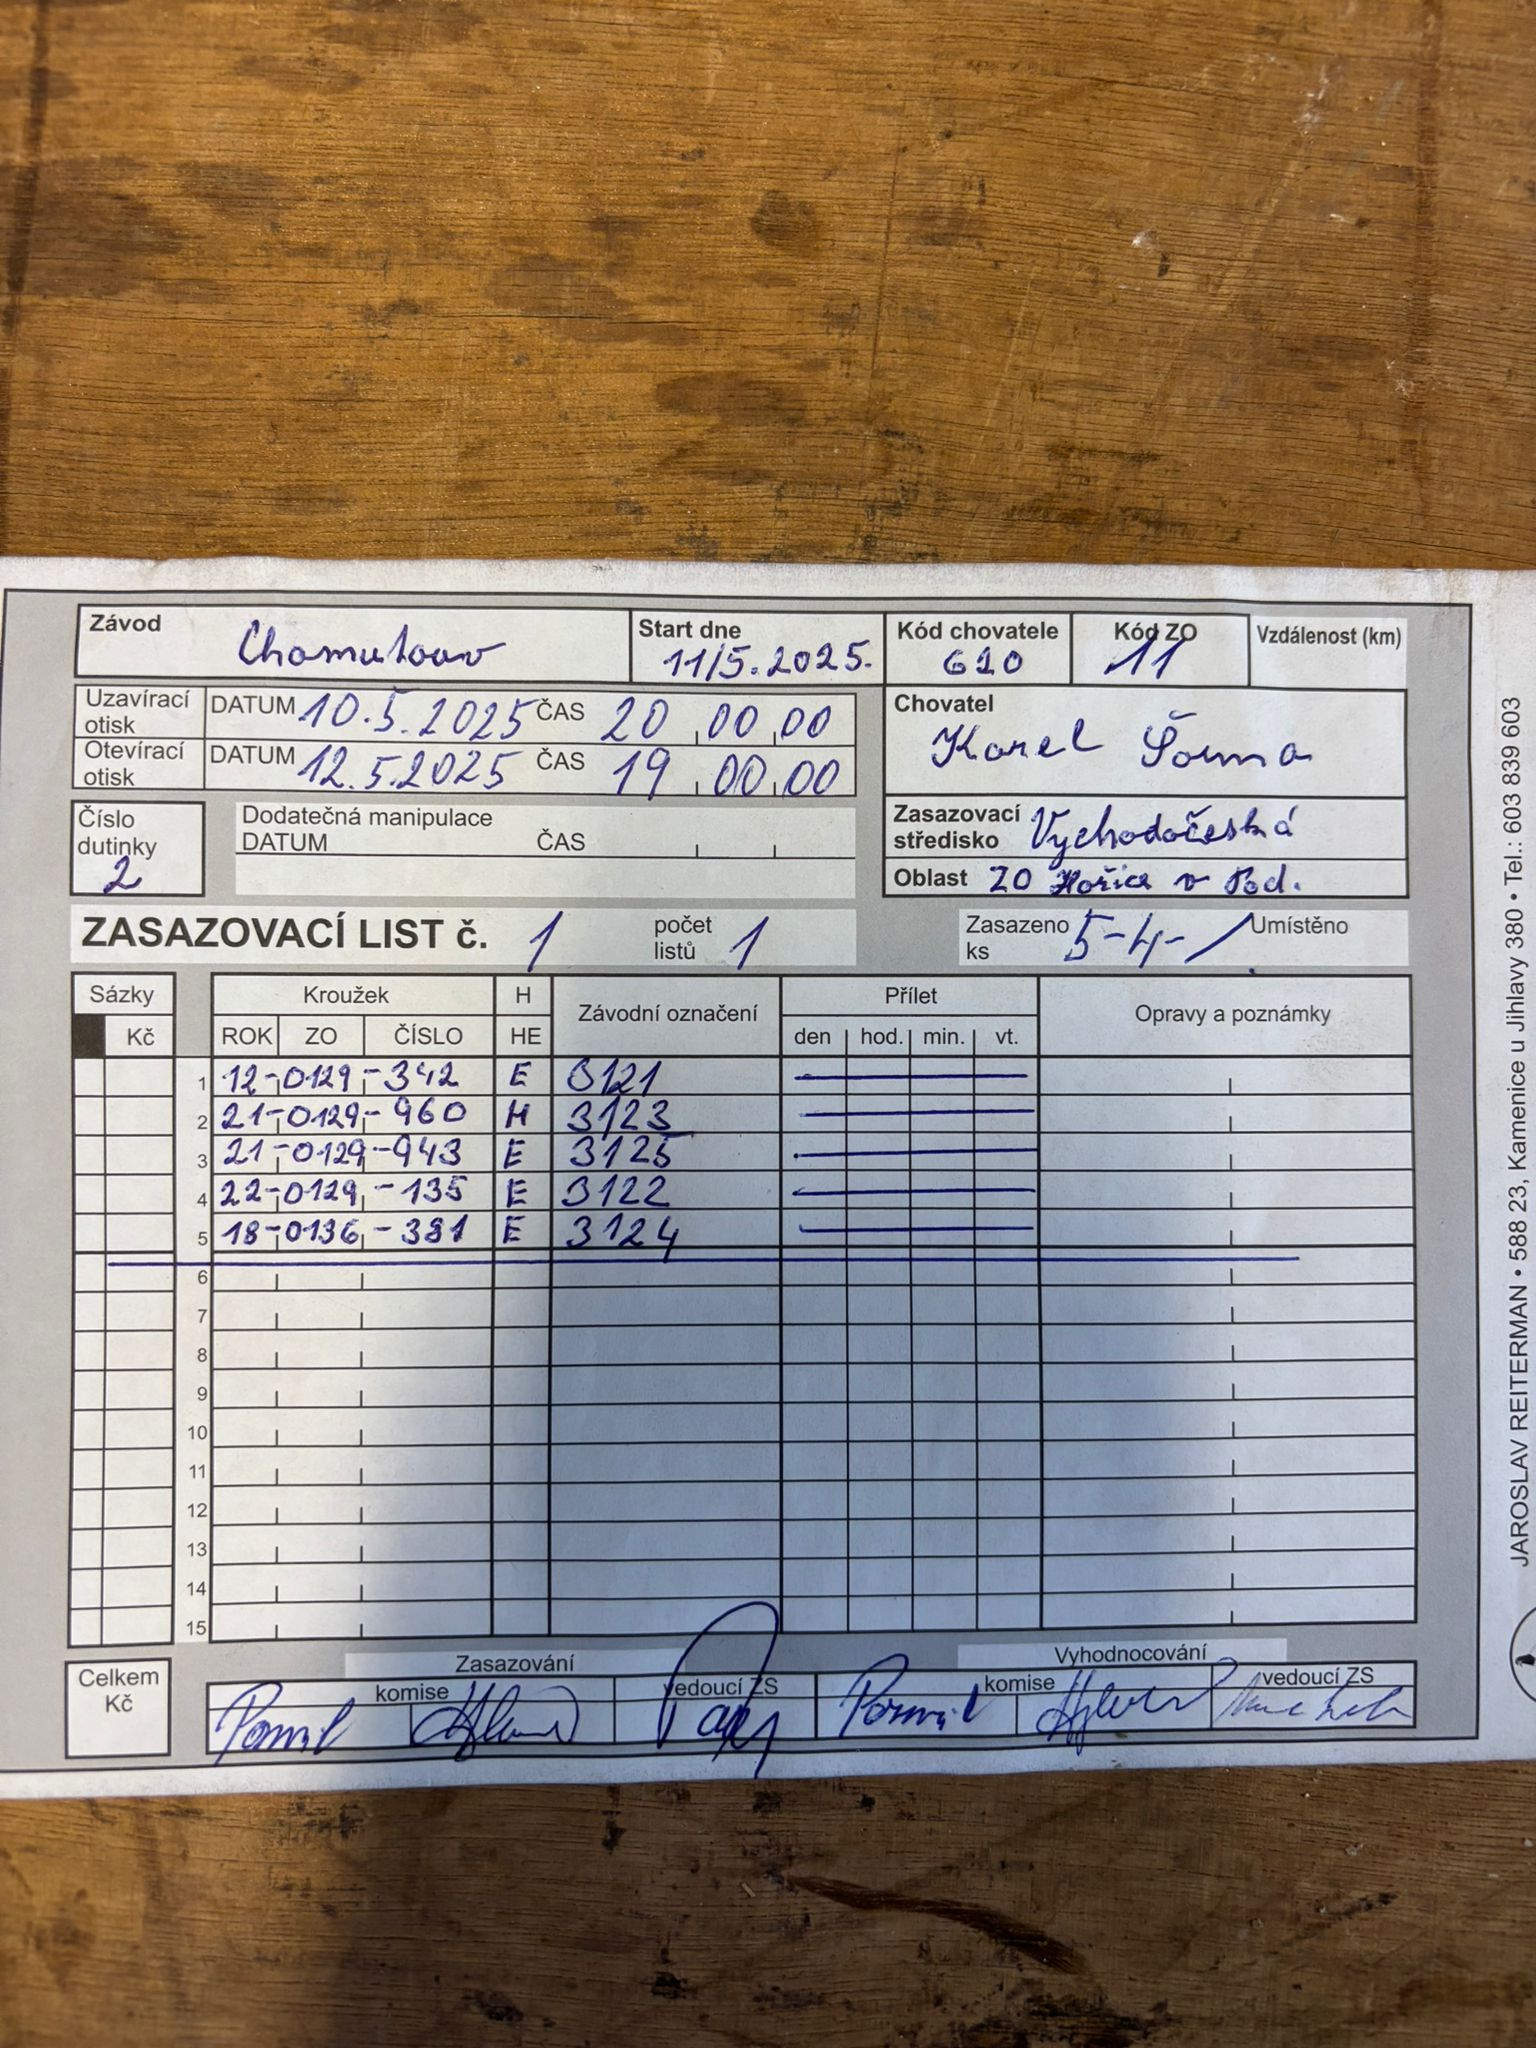 Závod Chomutoov
Start dne 11/5.2025.
Kód chovatele 610
Kód ZO 11
Vzdálenost (km)
Uzavírací otisk DATUM 10.5.2025 ČAS 20 00 00
Otevírací otisk DATUM 12.5.2025 ČAS 19 00 00
Chovatel Karel Šorma
Číslo dutinky 2
Dodatečná manipulace
DATUM ČAS
Zasazovací středisko Vychodočeská
Oblast ZO Hořice v Pod.
ZASAZOVACÍ LIST č. 1 počet listů 1
Zasazeno ks 5-4-/ Umístěno
Sázky Kroužek H Závodní označení Přílet Opravy a poznámky
Kč ROK ZO ČÍSLO HE den hod. min. vt.
1 12-0129-342 E 3121
2 21-0129-960 H 3123
3 21-0129-943 E 3125
4 22-0129-135 E 3122
5 18-0136-381 E 3124
6
7
8
9
10
11
12
13
14
15
Celkem Kč
Zasazování Vyhodnocování
komise vedoucí ZS komise vedoucí ZS
JAROSLAV REITERMAN • 588 23, Kamenice u Jihlavy 380 • Tel.: 603 839 603